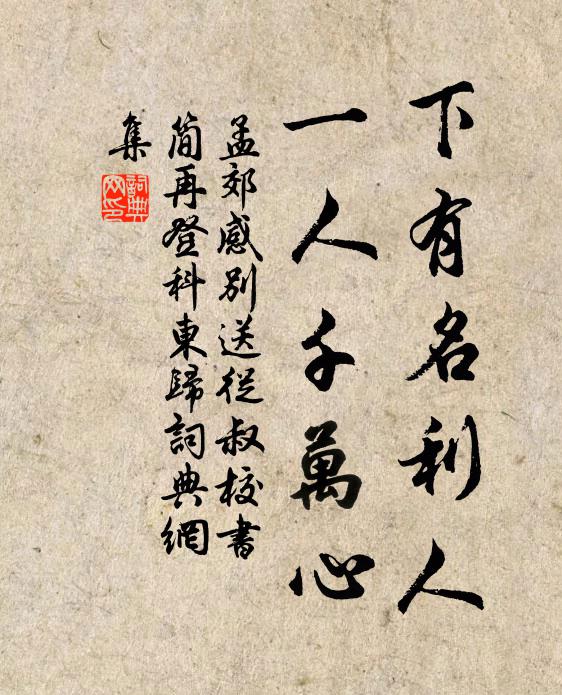 下有名利人
一人千萬心
孟郊感別送從叔校書
簡再登科東歸詞典網
集
詞典
网印